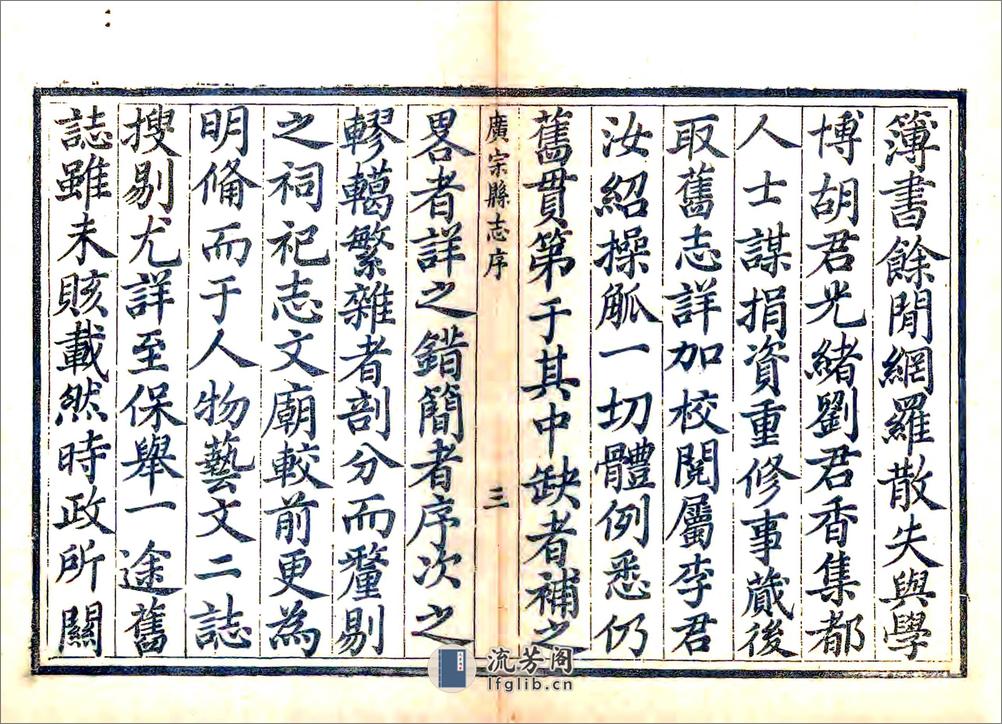 簿書餘閒網羅散失與學
博胡君光緒劉君香集都
人士謀捐資重修事蕆後
取舊志詳加校閱屬李君
汝紹操觚一切體例悉仍
舊貫第于其中缺者補之
廣宗縣志序
三
畧者詳之錯簡者序次之
轇轕繁雜者剖分而釐剔
之祠祀志文廟較前更為
明備而于人物藝文二誌
搜剔尤詳至保舉一途舊
誌雖未賅載然時政所關
流芳阁
lfglib.cn